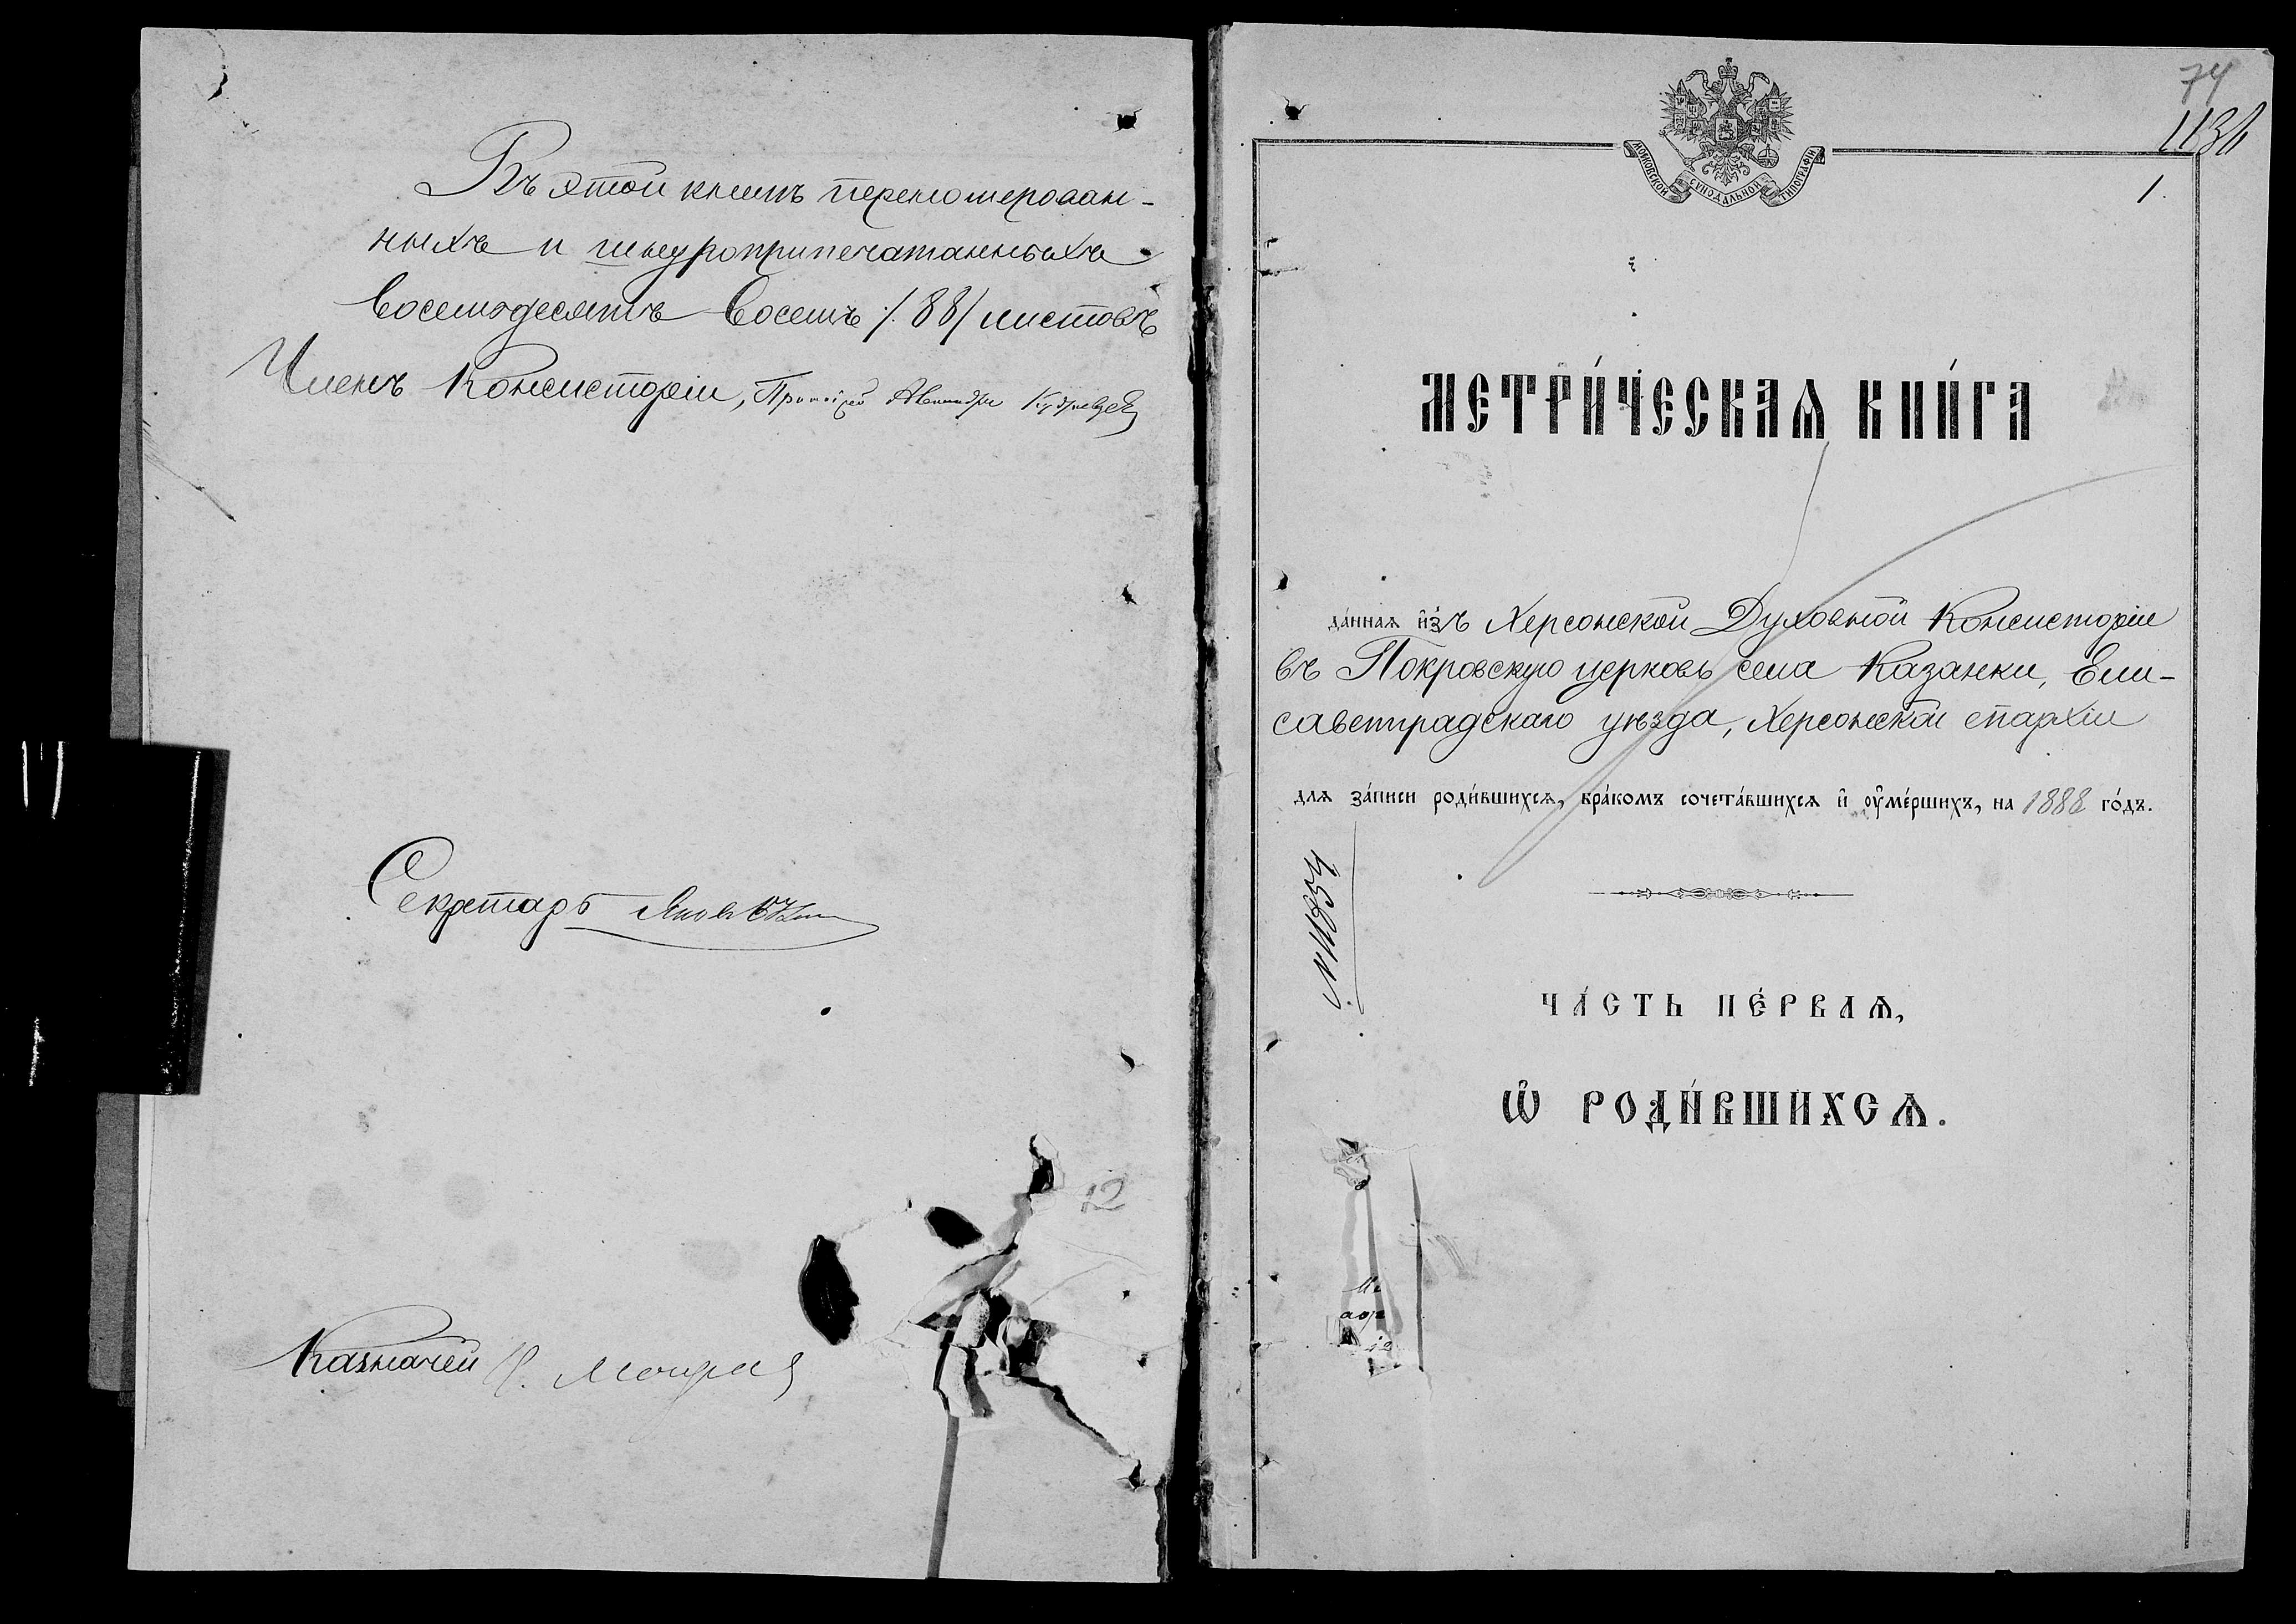 Въ этой книгѣ переномерован-
ныхъ и шнуроприпечатанныхъ
восемьдесятъ восемь /88/ листовъ
Членъ Консисторіи, Протоіерей Александръ Кудрявцевъ
Секретарь
Казначей
12
74
1136
1.
МОСКОВСКОЙ СѴНОДАЛЬНОЙ ТИПОГРАФІИ
МЕТРИ́ЧЕСКАѦ КНИ́ГА
да́ннаѧ и҆́зъ Херсонской Духовной Консисторіи
въ Покровскую церковь села Казанки, Ели-
саветградскаго уѣзда, Херсонской епархіи
для за́писи роди́вшихсѧ, бра́комъ сочета́вшихсѧ и҆ оу҆ме́ршихъ, на 1888 го́дъ.
№ 11854
ЧА́СТЬ ПЕ́РВАѦ,
Ѡ҆ РОДИ́ВШИХСѦ.